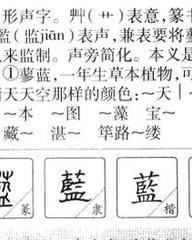 形声字。艸(艹)表意,篆书
(监jiān)表声,兼表要将
来监制。声旁简化。本义是
①蓼蓝,一年生草本植物,可
天天空那样的颜色:~天|~
~本 ~图 ~藻 宝~
藏~ 湛~ 筚路~缕
藍 篆 藍 隶 藍 楷